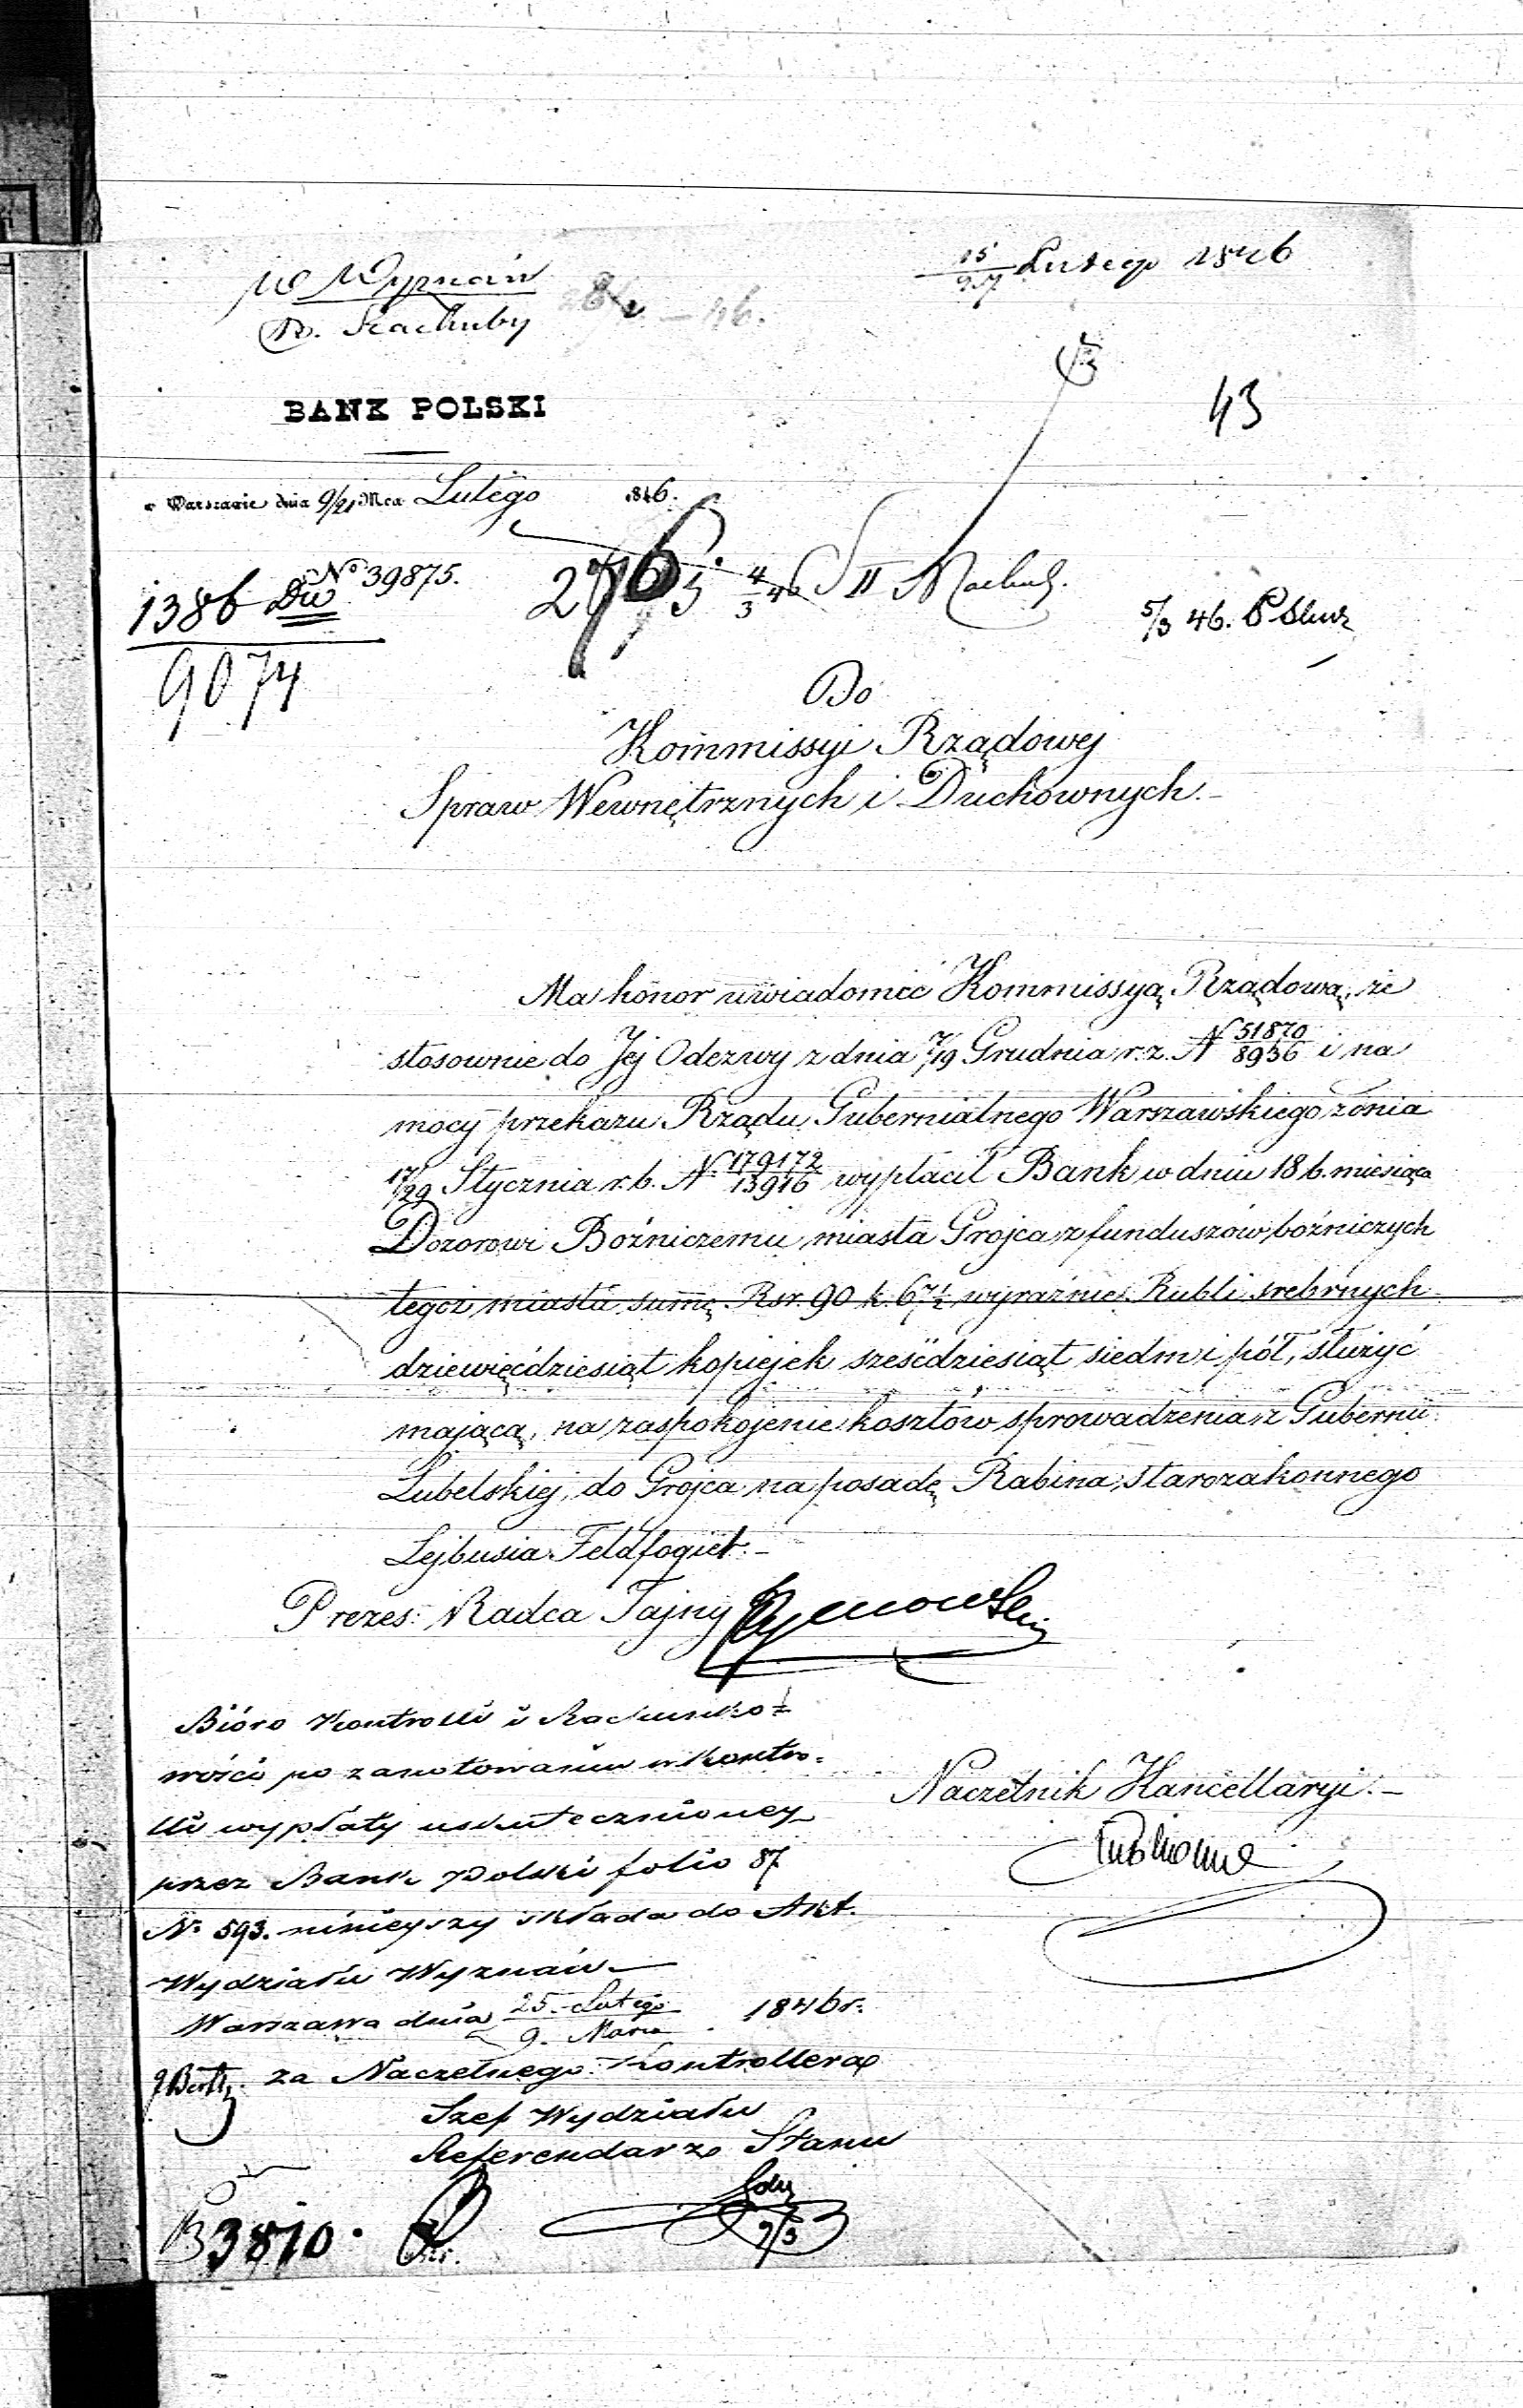 W Wyznań
R. Rachuby
15/27 Lutego 1846
BANK POLSKI
43
w Warszawie dnia 9/21 Mca Lutego 1846.
No 39875.
1386 Dw
9074
4/3 46 S II Rachub.
5/3 46.
Do
Kommissyi Rządowej
Spraw Wewnętrznych i Duchownych.-
Ma honor uwiadomić Kommissyą Rządową, że
stosownie do Jej Odezwy z dnia 7/19 Grudnia r. z. N 51870/8936 i na
mocy przekazu Rządu Gubernialnego Warszawskiego z dnia
17/29 Stycznia r. b. N. 179172/13916 wypłacił Bank w dniu 18 b. miesiąca
Dozorowi Bóźniczemu miasta Grojca z funduszów bóźniczych
tegoż miasta summę Rsr. 90 k. 67 1/2 wyraźnie: Rubli srebrnych
dziewięćdziesiąt kopiejek sześćdziesiąt siedm i pół, służyć
mającą, na zaspokojenie kosztów sprowadzenia z Gubernii
Lubelskiej, do Grojca na posadę Rabina, starozakonnego
Lejbusia Feldfogiel.-
Prezes: Radca Tajny Tymowski
Bióro Kontrolli i Rachunko=
wości po zanotowaniu w Kontro=
lli wypłaty uskutecznioney
przez Bank Polski folio 87
No 593. ninieyszy składa do Akt.
Wydziału Wyznań
Warszawa dnia 25. Lutego/9. Marca 1846 r.
za Naczelnego Kontrollera
Szef Wydziału
Referendarz Stanu
9/3
Naczelnik Kancellaryi.-
33810.